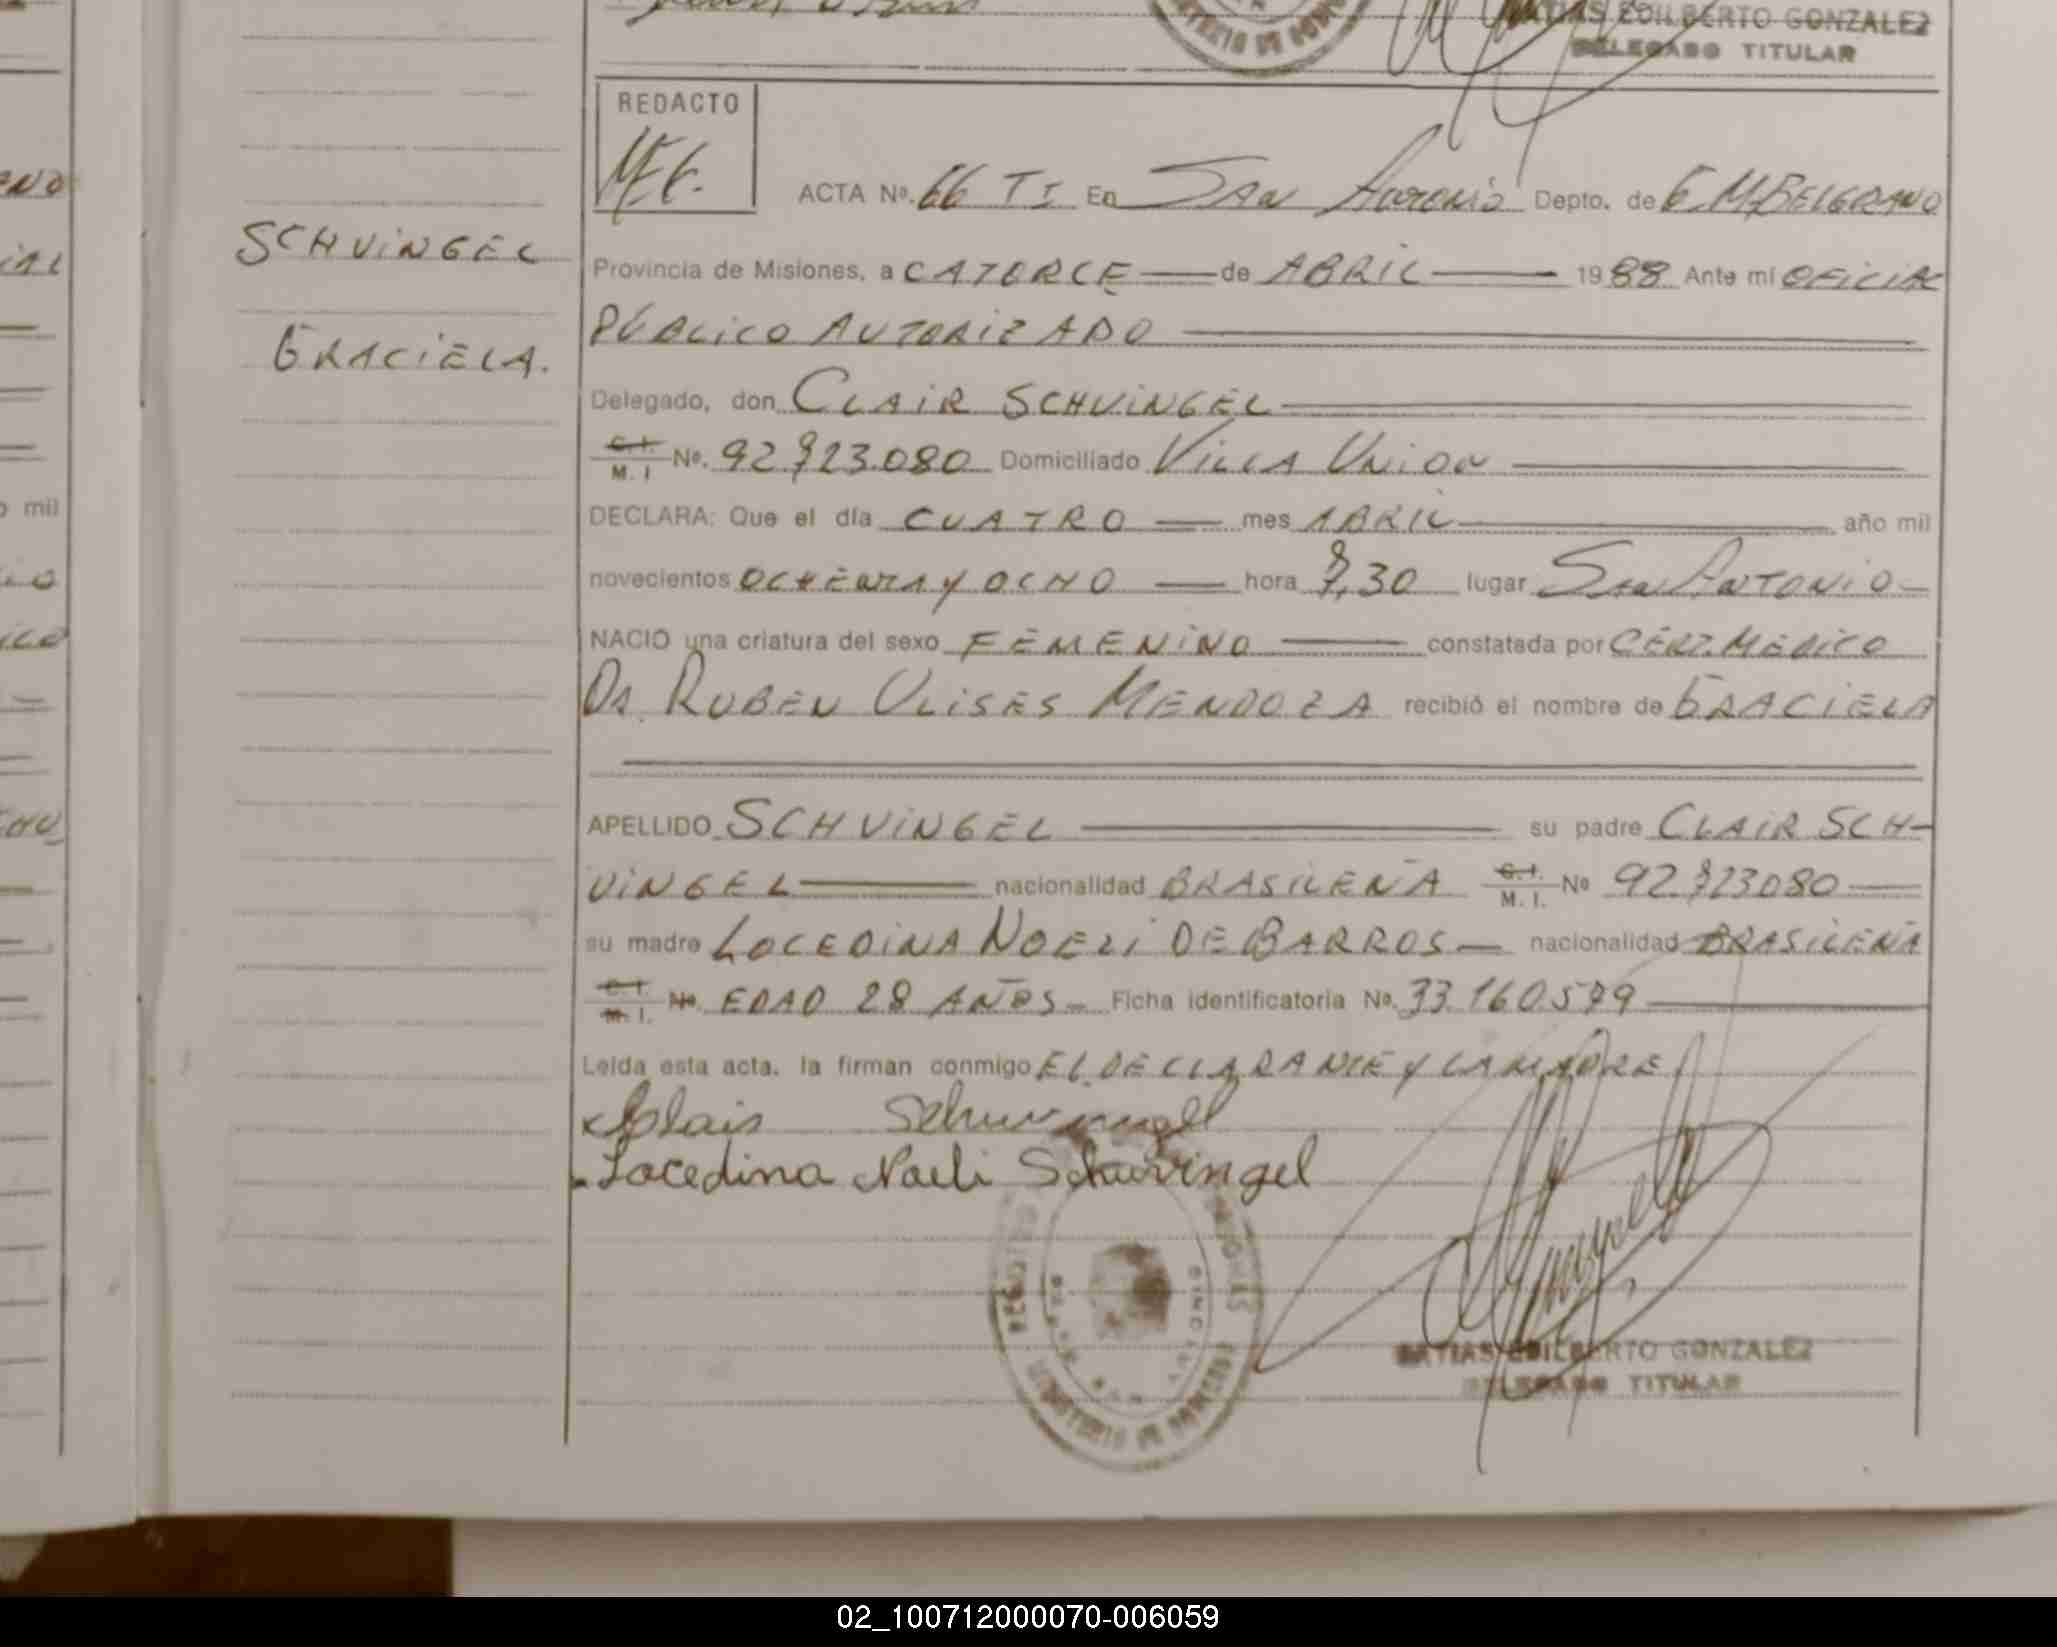 MATIAS EDILBERTO GONZALEZ
DELEGADO TITULAR
REDACTO
ACTA Nº. 66 T I En San Antonio Depto. de G. M. BELGRANO
SCHVINGEL
GRACIELA.
Provincia de Misiones, a CATORCE de ABRIL 1988 Ante mí OFICIAL
PÚBLICO AUTORIZADO
Delegado, don CLAIR SCHVINGEL
C. I. M. I Nº. 92.723.080 Domiciliado VILLA UNION
DECLARA: Que el día CUATRO mes ABRIL año mil
novecientos OCHENTA Y OCHO hora 7,30 lugar SAN ANTONIO
NACIO una criatura del sexo FEMENINO constatada por CERT. MEDICO
DR. RUBEN ULISES MENDOZA recibió el nombre de GRACIELA
APELLIDO SCHVINGEL su padre CLAIR SCH-
VINGEL nacionalidad BRASILEÑA C. I. M. I. Nº 92.723080
su madre LOCEDINA NOELI DE BARROS nacionalidad BRASILEÑA
C. I. M. I. Nº. EDAD 28 AÑOS Ficha identificatoria Nº. 33.160.579
Leída esta acta. la firman conmigo EL DECLARANTE Y LA MADRE
Clair Schvingel
Locedina Naeli Schuvingel
MATIAS EDILBERTO GONZALEZ
DELEGADO TITULAR
02_100712000070-006059